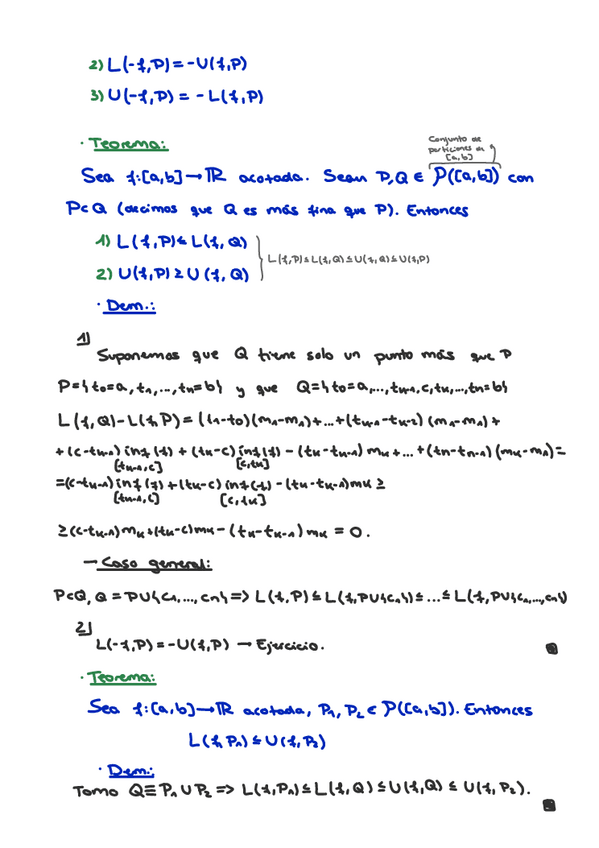 2) L(-f,P) = -U(f,P)
3) U(-f,P) = - L(f,P)
· Teorema:
Conjunto de
particiones de
[a,b]
Sea f:[a,b]→ℝ acotada. Sean P,Q ∈ P([a,b]) con
P⊂Q (decimos que Q es más fina que P). Entonces
1) L(f,P) ≤ L(f,Q)
2) U(f,P) ≥ U(f,Q)
L(f,P) ≤ L(f,Q) ≤ U(f,Q) ≤ U(f,P)
· Dem.:
1)
Suponemos que Q tiene solo un punto más que P
P={t₀=a, t₁,...,tₙ=b} y que Q={t₀=a,...,tₖ₋₁,c,tₖ,...,tₙ=b}
L(f,Q)-L(f,P) = (t₁-t₀)(m₁-m₁)+...+(tₖ₋₁-tₖ₋₂)(m₁-m₁)+
+(c-tₖ₋₁) inf(f) + (tₖ-c) inf(f) - (tₖ-tₖ₋₁) mₖ+...+(tₙ-tₙ₋₁)(mₖ-mₖ)=
[tₖ₋₁,c] [c,tₖ]
=(c-tₖ₋₁) inf(f) + (tₖ-c) inf(f) - (tₖ-tₖ₋₁)mₖ ≥
[tₖ₋₁,c] [c,tₖ]
≥(c-tₖ₋₁)mₖ+(tₖ-c)mₖ-(tₖ-tₖ₋₁)mₖ = 0.
→ Caso general:
P⊂Q, Q = P∪{c₁,...,cₙ} => L(f,P) ≤ L(f,P∪{c₁}) ≤...≤ L(f,P∪{c₁,...,cₙ})
2)
L(-f,P) = -U(f,P) → Ejercicio.
· Teorema:
Sea f:[a,b]→ℝ acotada, P₁,P₂ ∈ P([a,b]). Entonces
L(f,P₁) ≤ U(f,P₂)
· Dem:
Tomo Q≡P₁∪P₂ => L(f,P₁) ≤ L(f,Q) ≤ U(f,Q) ≤ U(f,P₂).